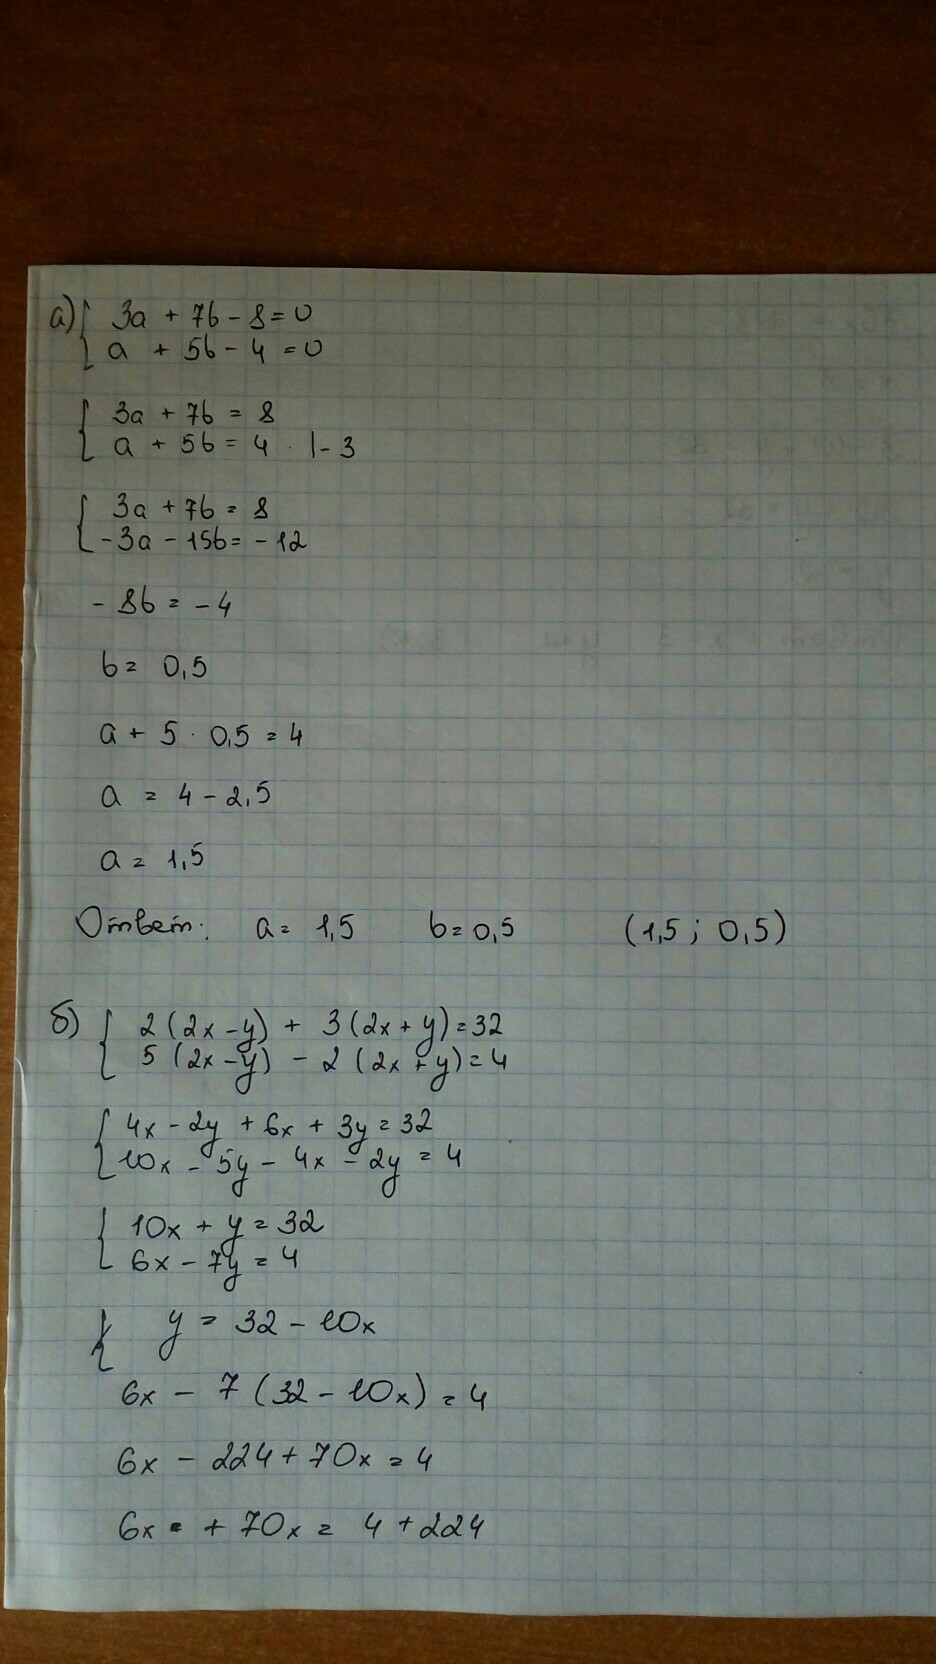 а) { 3a + 7b - 8 = 0
a + 5b - 4 = 0
{ 3a + 7b = 8
a + 5b = 4 · |- 3
{ 3a + 7b = 8
-3a - 15b = -12
- 8b = - 4
b = 0,5
a + 5 · 0,5 = 4
a = 4 - 2,5
a = 1,5
Ответ: a = 1,5 b = 0,5 (1,5 ; 0,5)
б) { 2 (2x - y) + 3 (2x + y) = 32
5 (2x - y) - 2 (2x + y) = 4
{ 4x - 2y + 6x + 3y = 32
10x - 5y - 4x - 2y = 4
{ 10x + y = 32
6x - 7y = 4
{ y = 32 - 10x
6x - 7 (32 - 10x) = 4
6x - 224 + 70x = 4
6x + 70x = 4 + 224